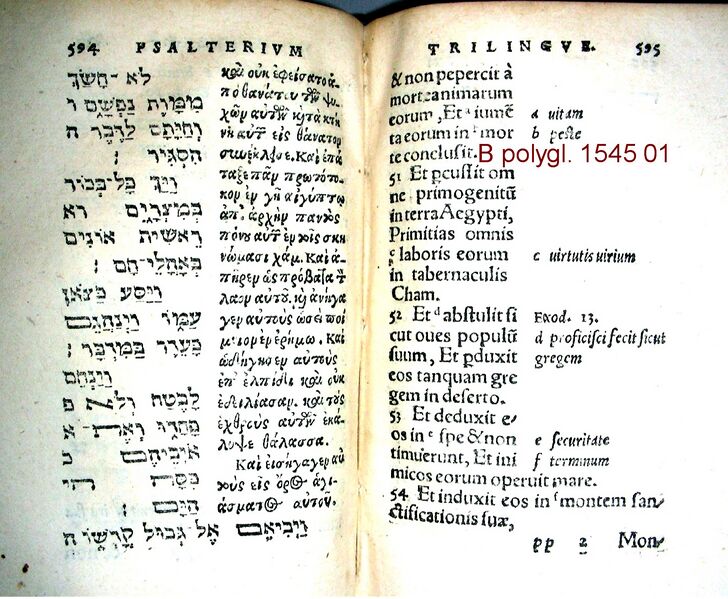 594 PSALTERIVM
לֹא ־חָשַׂךְ
מִמָּוֶת נַפְשָׁם ו
וְחַיָּתָם לַדֶּבֶר ה
הִסְגִּיר :
וַיַּךְ כָּל־בְּכוֹר
בְּמִצְרָיִם רא
רֵאשִׁית אוֹנִים
בְּאָהֳלֵי־חָם :
וַיַּסַּע כַּצֹּאן
עַמּוֹ וַיְנַהֲגֵם
כַּעֵדֶר בַּמִּדְבָּר :
וַיַּנְחֵם
לָבֶטַח וְלֹא פ
פָחָדוּ וְאֶת א
אוֹיְבֵיהֶם כ
כִּסָּה הי
הַיָּם :
וַיְבִיאֵם אֶל גְּבוּל קָדְשׁוֹ ה
καὶ οὐκ ἐφείσατο ἀ-
πὸ θανάτου τῶν ψυ-
χῶν αὐτῶν καὶ τὰ κτή
νη αὐτῶν εἰς θάνατον
συνέκλεισε. Καὶ ἐπά
ταξε πᾶν πρωτότο-
κον ἐν γῇ αἰγύπτῳ
ἀπ' ἀρχὴν παντὸς
πόνου αὐτῶν ἐν τοῖς σκη
νώμασι χάμ. Καὶ ἀ-
πῆρεν ὡς πρόβατα τὸν
λαὸν αὐτοῦ. καὶ ἀνήγα
γεν αὐτοὺς ὡσεὶ ποί
μνιον ἐν ἐρήμῳ. Καὶ
ὡδήγησεν αὐτοὺς
ἐπ' ἐλπίδι καὶ οὐκ
ἐδειλίασαν. καὶ τοὺς
ἐχθροὺς αὐτῶν ἐκά-
λυψε θάλασσα.
Καὶ εἰσήγαγεν αὐ
τοὺς εἰς ὄρος ἁγι-
άσματος αὐτοῦ.
TRILINGVE. 595
& non pepercit à
morte animarum
eorum, Et ᵃ iumē
ta eorum in ᵇ mor
te conclusit.
51 Et pcussit om
ne primogenitū
in terra Aegypti,
Primitias omnis
ᶜ laboris eorum
in tabernaculis
Cham.
52 Et ᵈ abstulit si
cut oues populū
suum, Et pduxit
eos tanquam gre
gem in deserto.
53 Et deduxit e-
os in ᵉ spe & non
timuerunt, Et ini
micos eorum operuit mare.
54 Et induxit eos in ᶠ montem san-
ctificationis suæ,
a uitam
b peste
c uirtutis uirium
Exod. 13.
d proficisci fecit sicut
gregem
e securitate
f terminum
pp 2 Mon-
B polygl. 1545 01